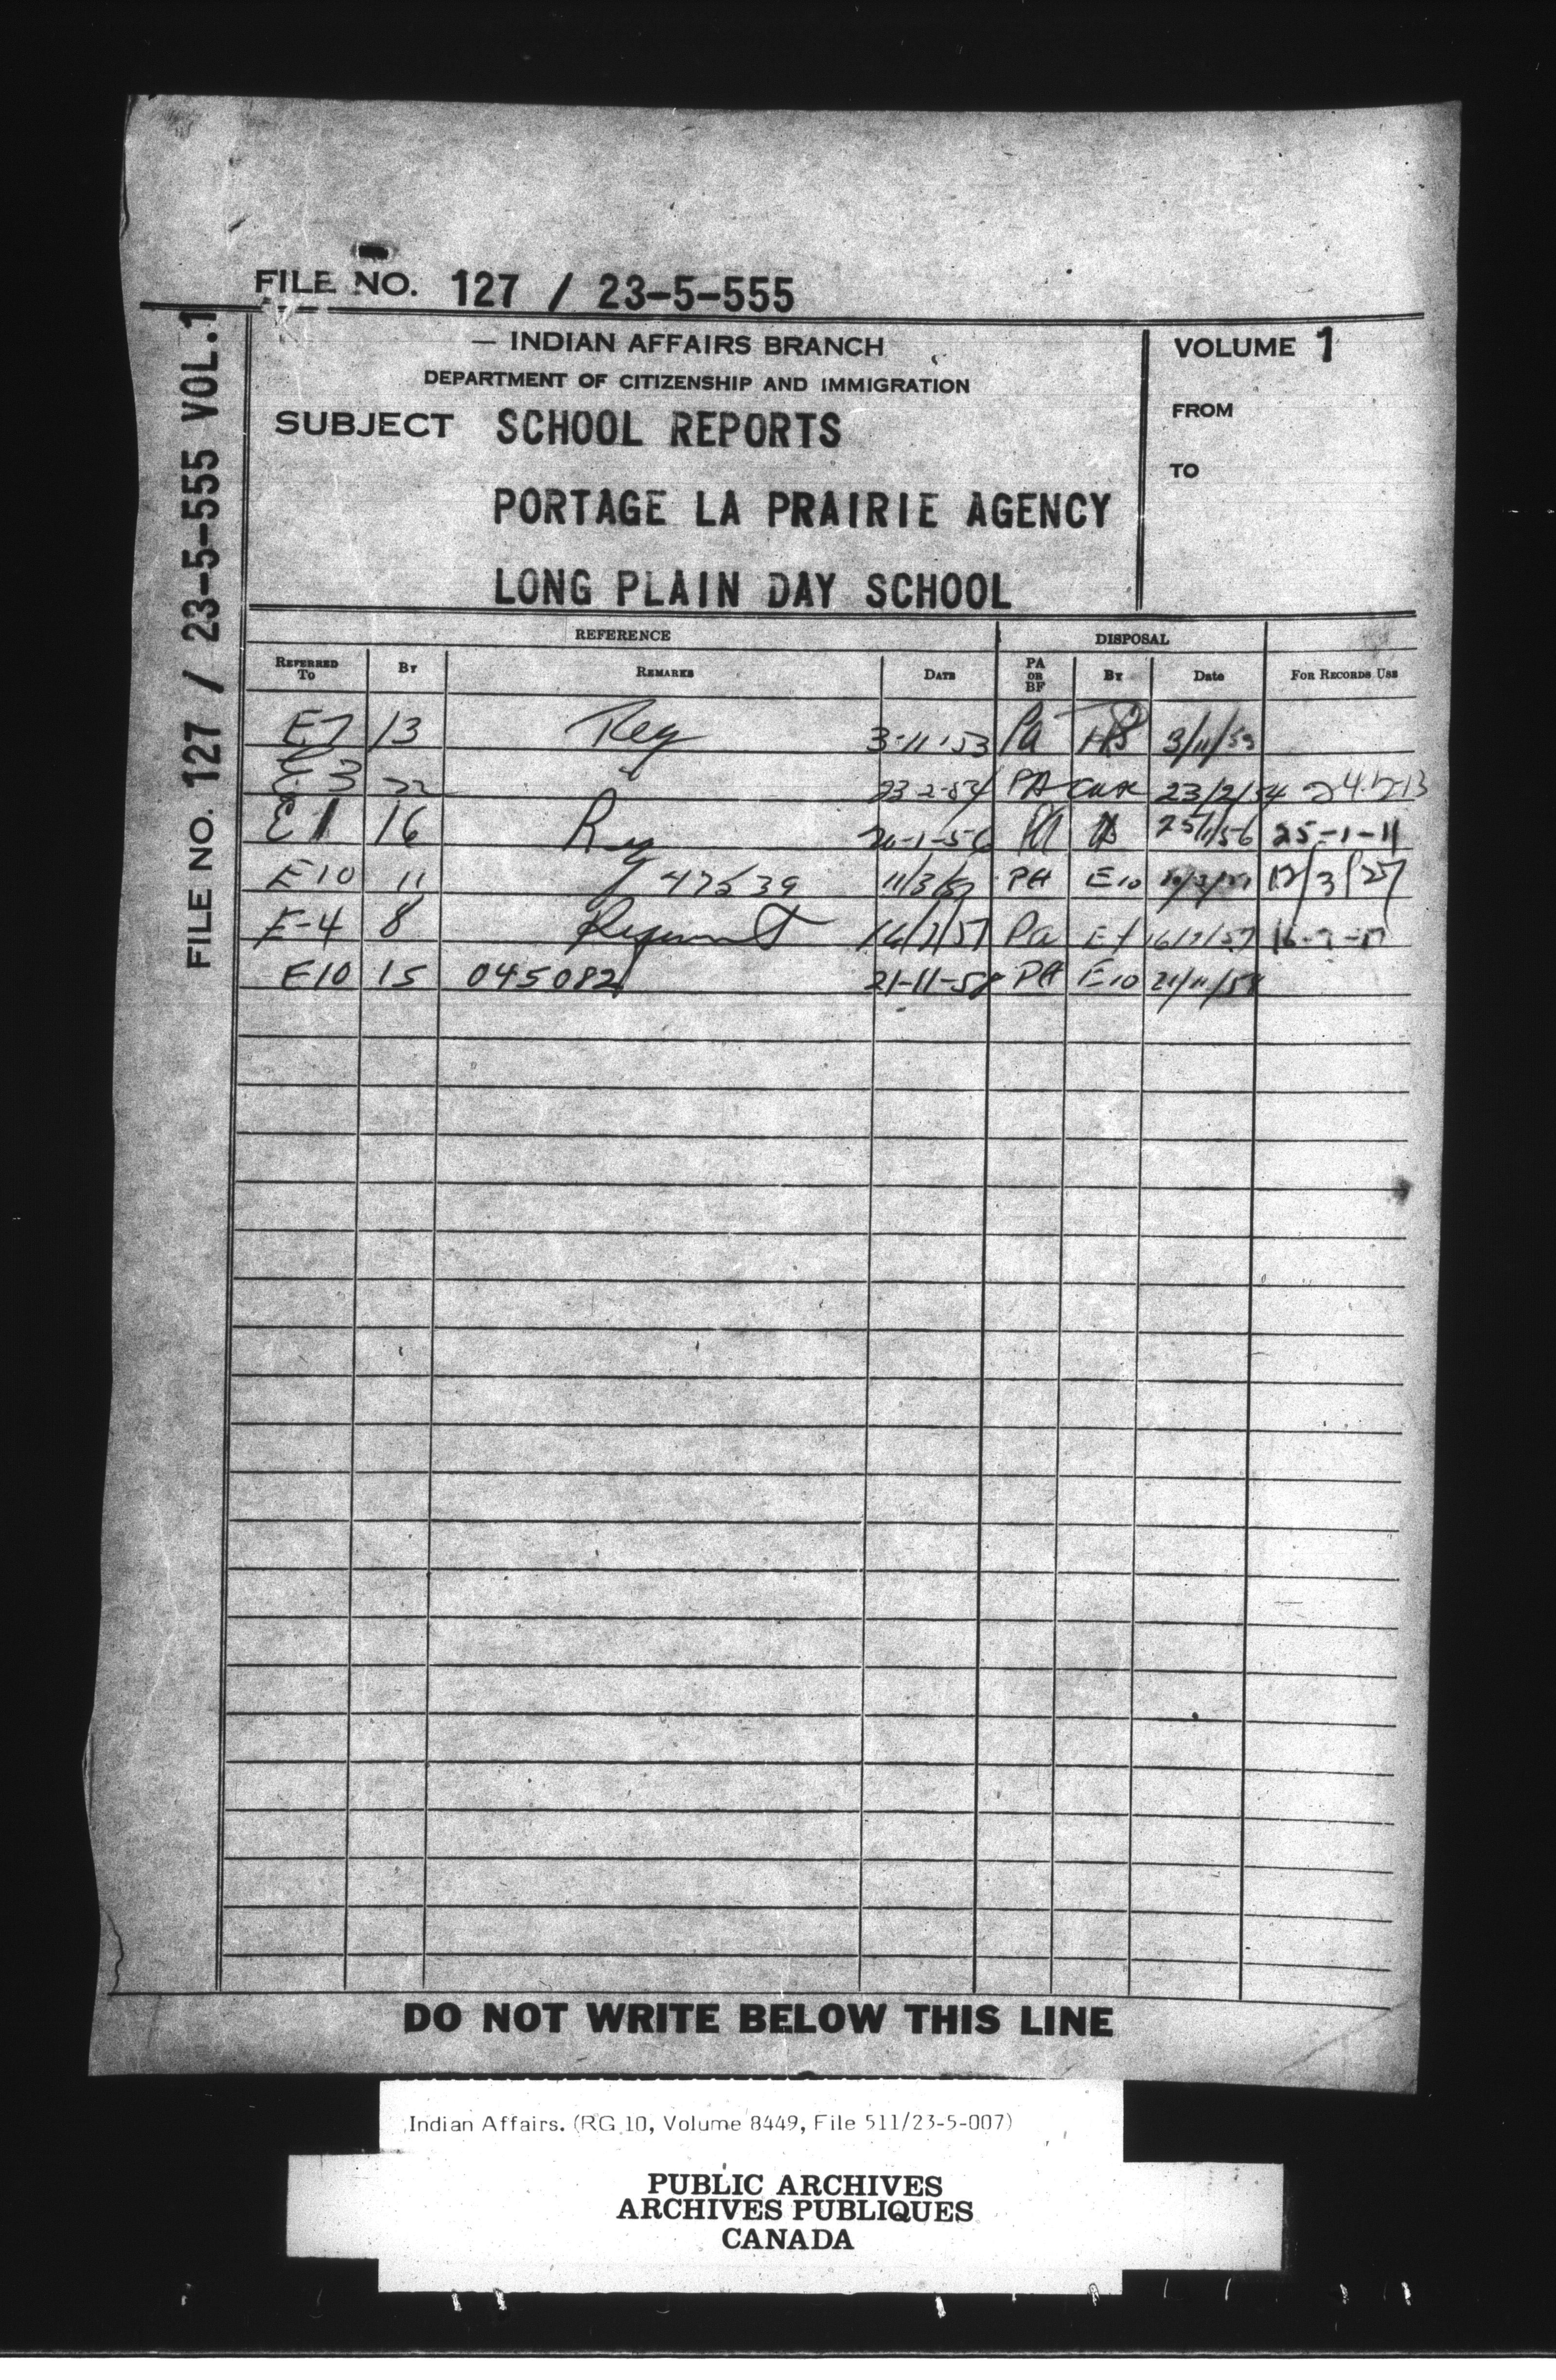 FILE NO. 127 / 23-5-555
FILE NO. 127 / 23-5-555 VOL.1
— INDIAN AFFAIRS BRANCH
DEPARTMENT OF CITIZENSHIP AND IMMIGRATION
SUBJECT SCHOOL REPORTS
PORTAGE LA PRAIRIE AGENCY
LONG PLAIN DAY SCHOOL
VOLUME 1
FROM
TO
REFERENCE DISPOSAL
REFERRED TO BY REMARKS DATE PA OR BF BY Date FOR RECORDS USE
E7 13 Reg 3-11-53 Pa 3/11/53
E3 22 23-2-54 PA 23/2/54
E1 16 Reg PA 25/1/56 25-1-11
E10 11 47539 11/3/57 PA E10 12/3/57
E-4 8 16/7/57 Pa E4 16/7/57
E10 15 045082 21-11-58 PA E10 21/11/58
DO NOT WRITE BELOW THIS LINE
Indian Affairs. (RG 10, Volume 8449, File 511/23-5-007)
PUBLIC ARCHIVES
ARCHIVES PUBLIQUES
CANADA